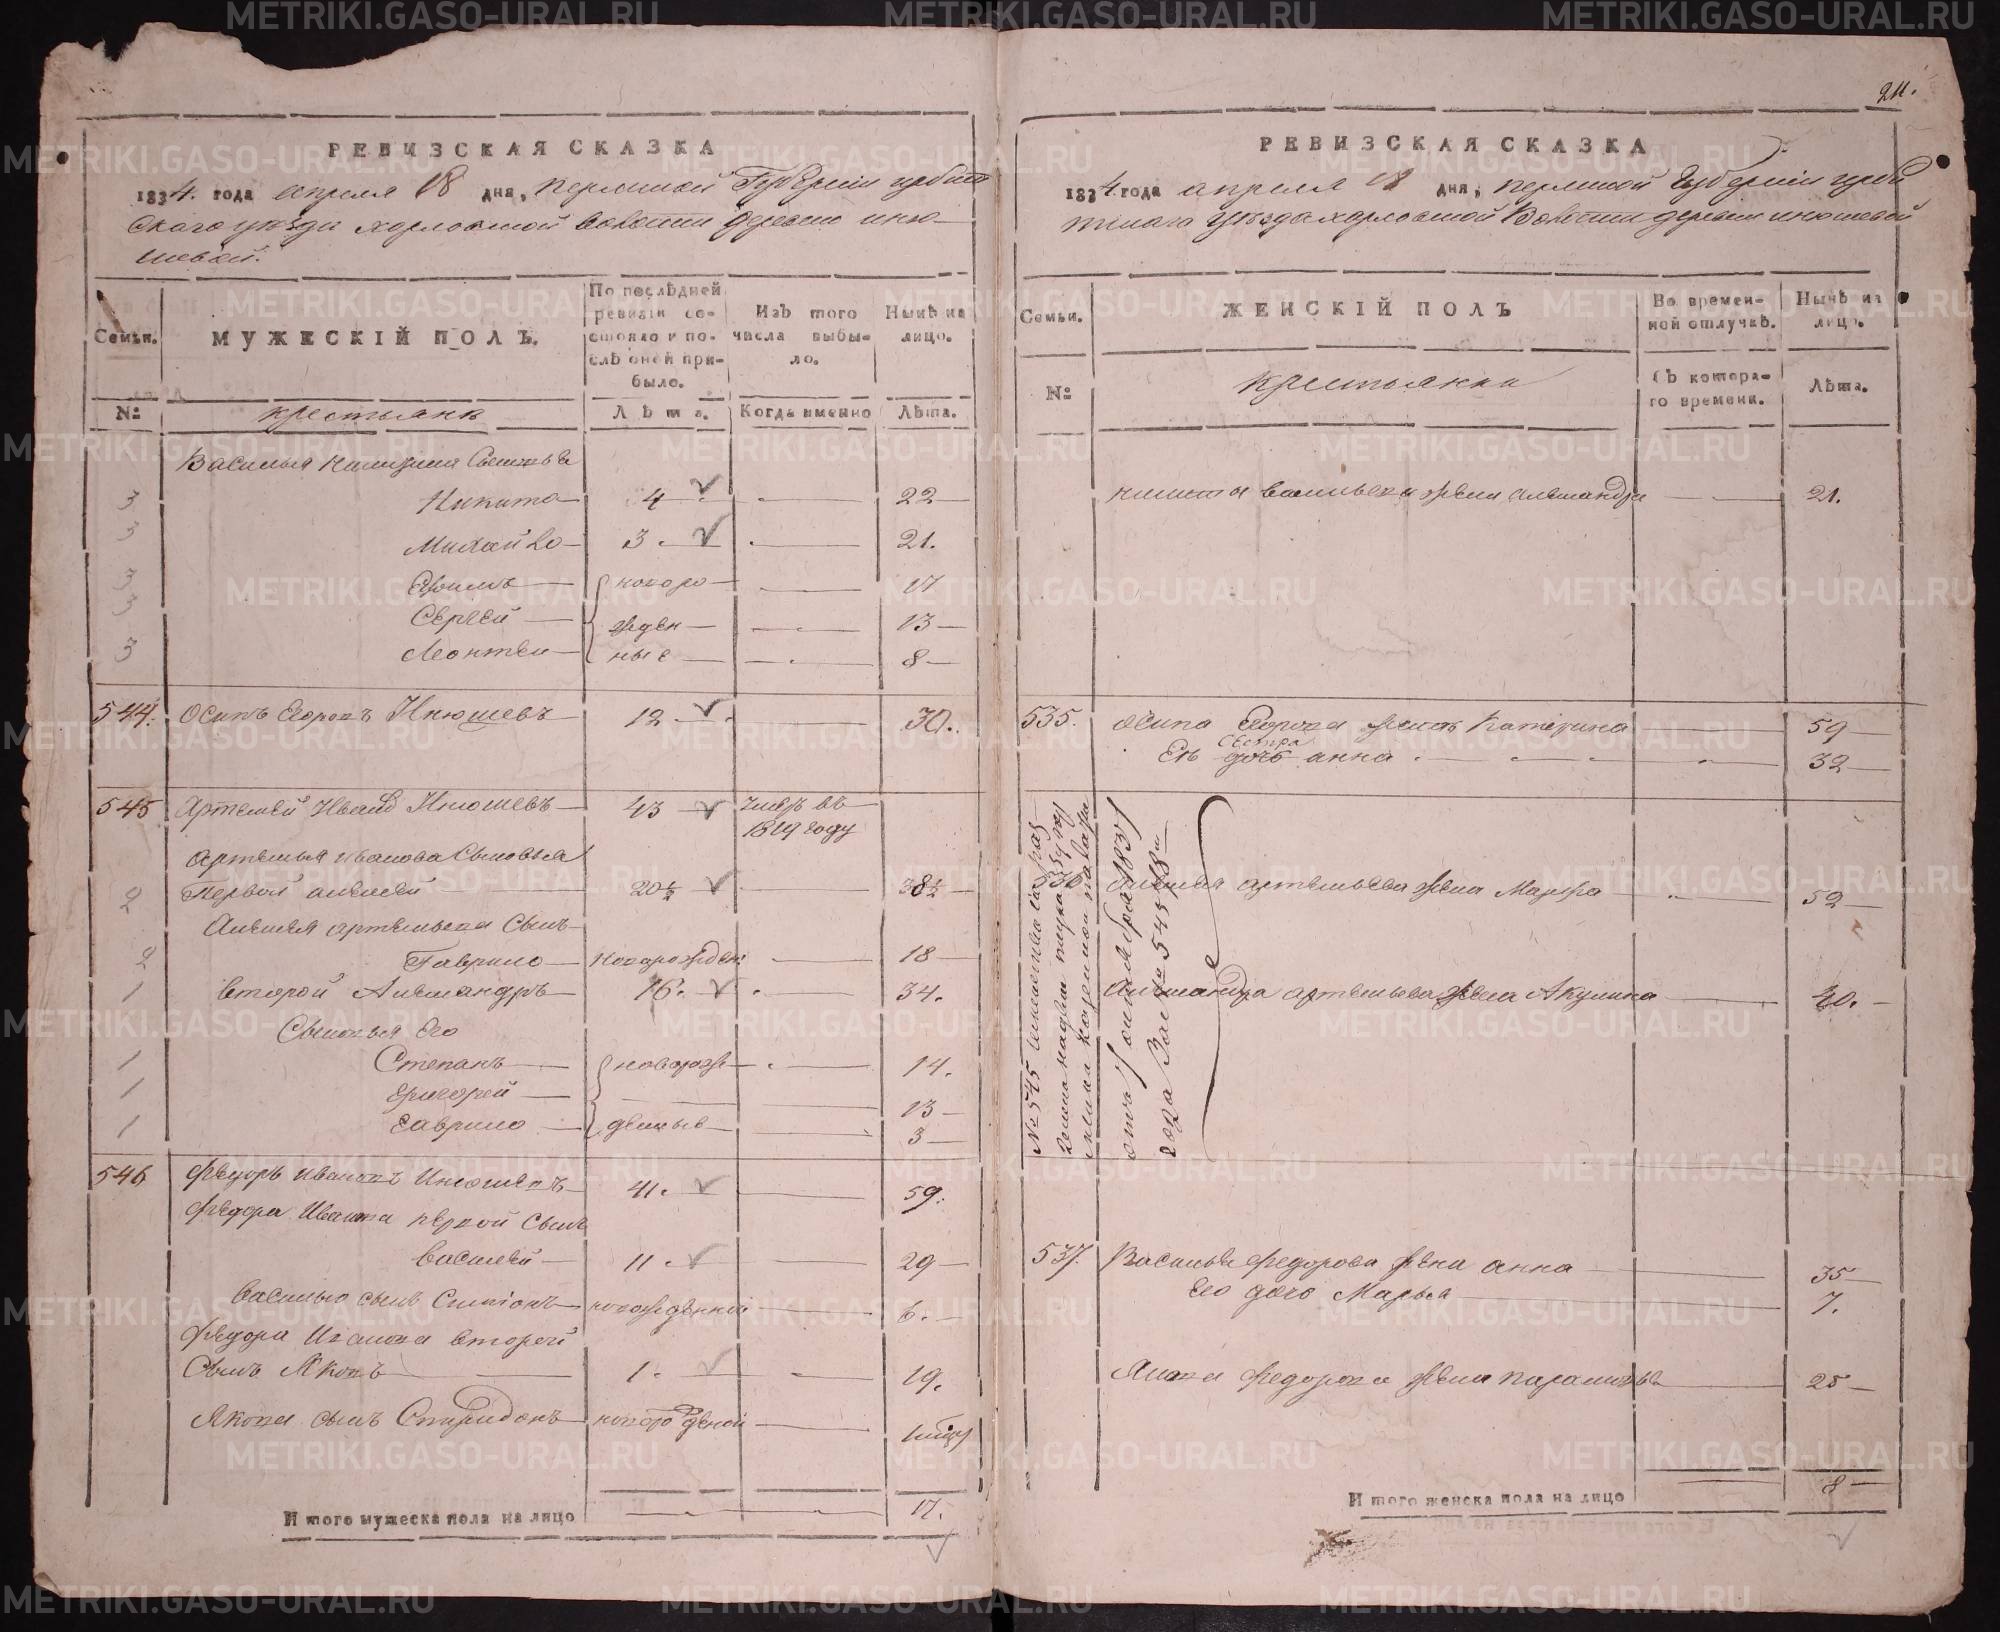 РЕВИЗСКАЯ СКАЗКА
1834. года апреля 18 дня, пермской Губернии ирбит
скаго уезда харловской волости деревни иню-
шевой.
Семьи.
МУЖЕСКІЙ ПОЛЪ.
По послѣдней ревизіи состояло и послѣ оней прибыло.
Изъ того числа выбыло.
Нынѣ на лицо.
№
крестьянъ
Лѣта.
Когда именно
Лѣта.
Василья Сыновья
3 Никита 4 22
3 Михайло 3. 21.
3 Ефимъ новоро 17
3 Сергей жден 13
3 Леонтей ные 8
544. Осипъ Егоровъ Инюшевъ 12 30.
545 Артемей Иванов Инюшевъ 43 умеръ въ
1819 году
Артемья иванова Сыновья
2 Первой алексей 20½ 38½
Алексея артемьева Сынъ
2 Гаврило новорожден 18
1 второй Александръ 16. 34.
Сыновья Его
1 Степанъ новорож 14.
1 Григорей 13
1 Гаврило денные 3
546 Федоръ Ивановъ Инюшевъ 41. 59.
Федора Иванова первой сынъ
Василей 11. 29
Василью сынъ Симіонъ новорожденной 6.
Федора Иванова второй
Сынъ Яковъ 1. 19.
Якова сынъ Спиридонъ новорожденой
Итого мужеска пола на лицо 17.
24.
РЕВИЗСКАЯ СКАЗКА
1834. года апреля 18 дня, пермской Губернии ирби
тскаго Уезда харловской Волости деревни инюшевой
Семьи.
ЖЕНСКІЙ ПОЛЪ
Во временной отлучкѣ.
Нынѣ на лицо.
№
крестьянки
Съ котораго времени.
Лѣта.
никиты васильева жена александра 21.
535. Осипа Егорова мать Катерина 59
сестра
Ево дочь анна 32
№ 545
алексея артемьева жена Мавра 52
Александра артемьева жена Акулина 40.
537. Василья Федорова жена анна 35
Его дочь Марья 7.
Якова Федорова жена парасковья 25
Итого женска пола на лицо 8
METRIKI.GASO-URAL.RU